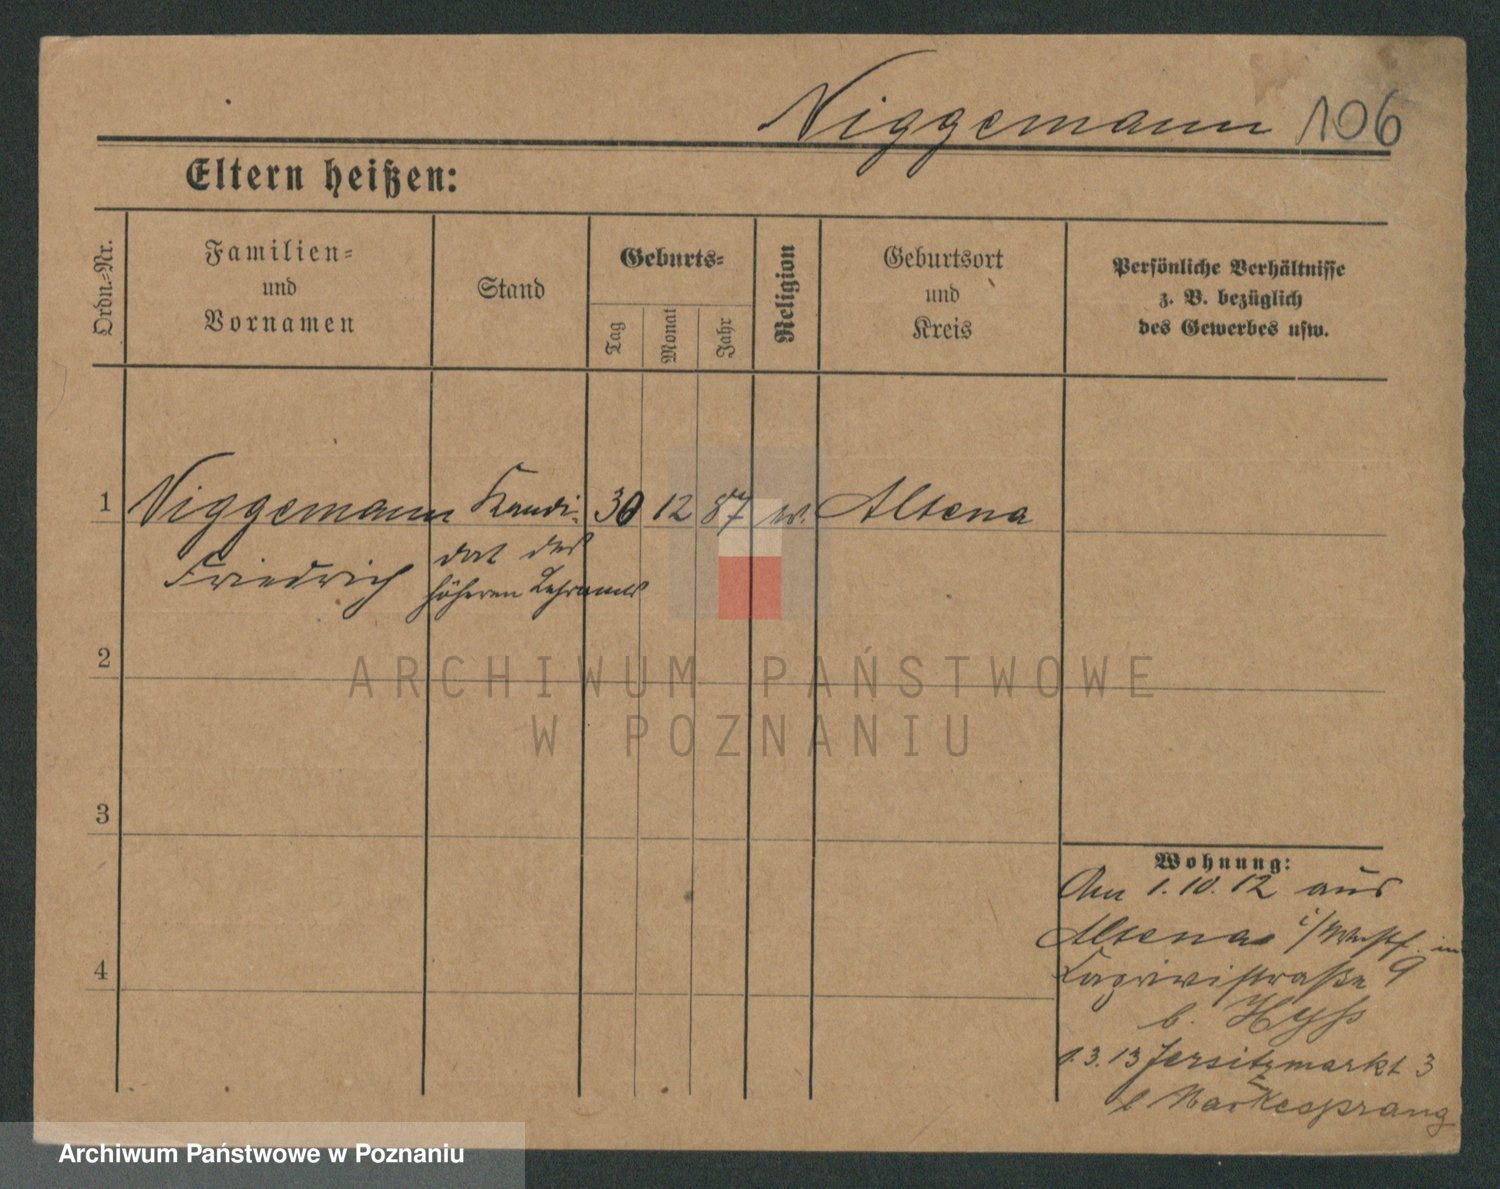 Niggemann 106
Eltern heißen:
Ordn.-Nr.
Familien-
und
Vornamen
Stand
Geburts-
Tag
Monat
Jahr
Religion
Geburtsort
und
Kreis
Persönliche Verhältnisse
z. B. bezüglich
des Gewerbes usw.
1 Niggemann Kandi- 30 12 87 Altena
Friedrich
dat des
höheren Lehramts
2
3
4
Wohnung:
Am 1.10.12 aus
Altena i/Westf. in
9
b.
1.3.13 Jersitzmarkt 3
ARCHIWUM PAŃSTWOWE
W POZNANIU
Archiwum Państwowe w Poznaniu